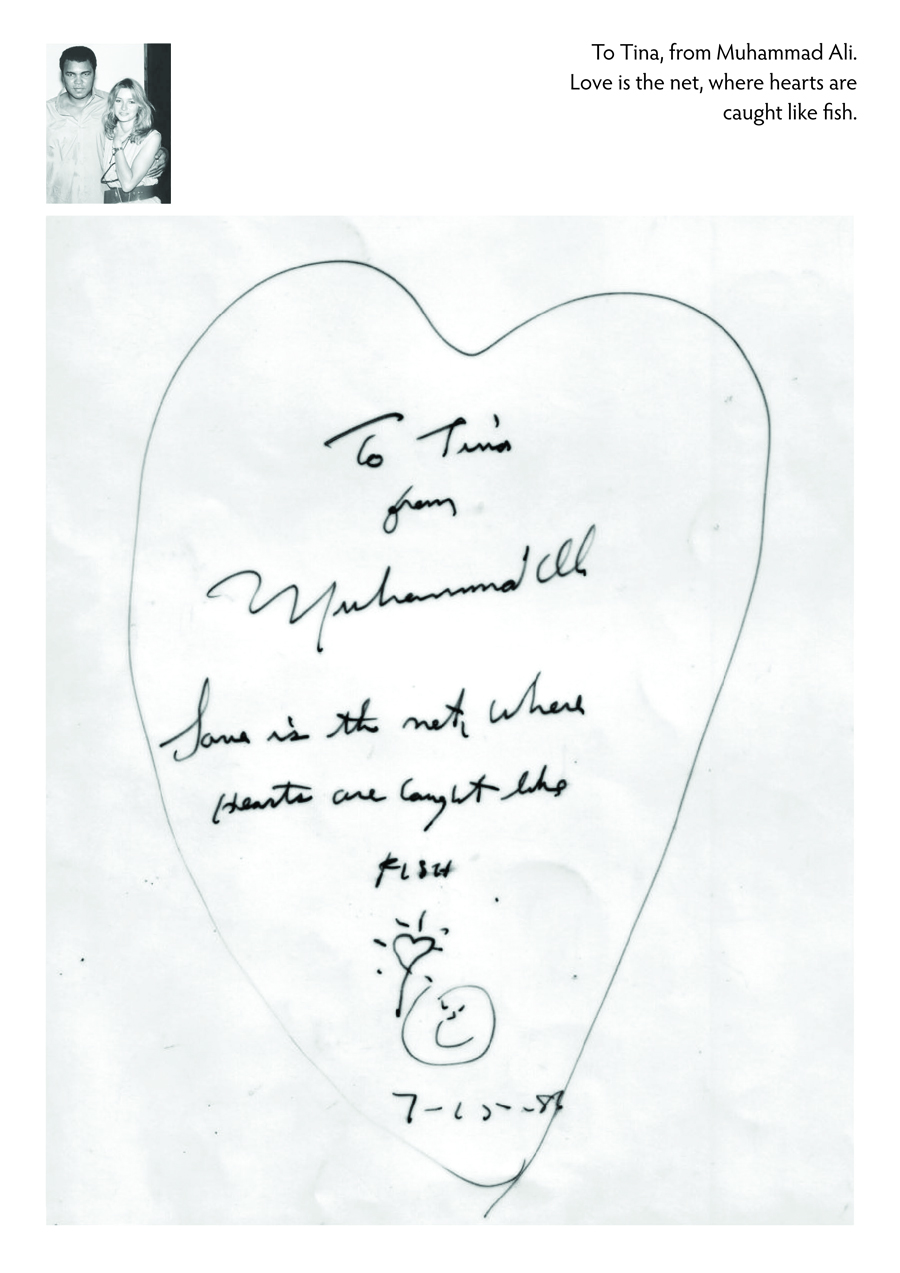 To Tina, from Muhammad Ali.
Love is the net, where hearts are
caught like fish.
To Tina
from
Muhammad Ali
Love is the net, where
Hearts are Caught like
FISH